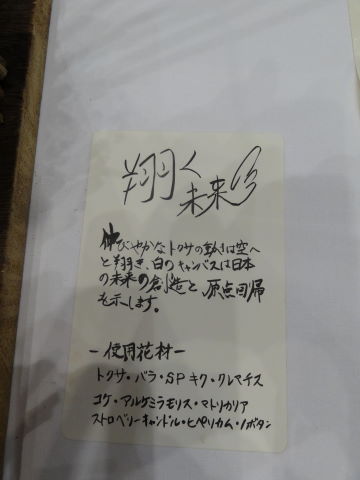 翔く
未来へ
伸びやかなトクサの動きは空へ
と翔き、白のキャンバスは日本
の未来の創造と、原点回帰
を示します。
－使用花材－
トクサ・バラ・SPキク・クレマチス
コケ・アルケミラモリス・マトリカリア
ストロベリーキャンドル・ヒペリカム・ノボタン